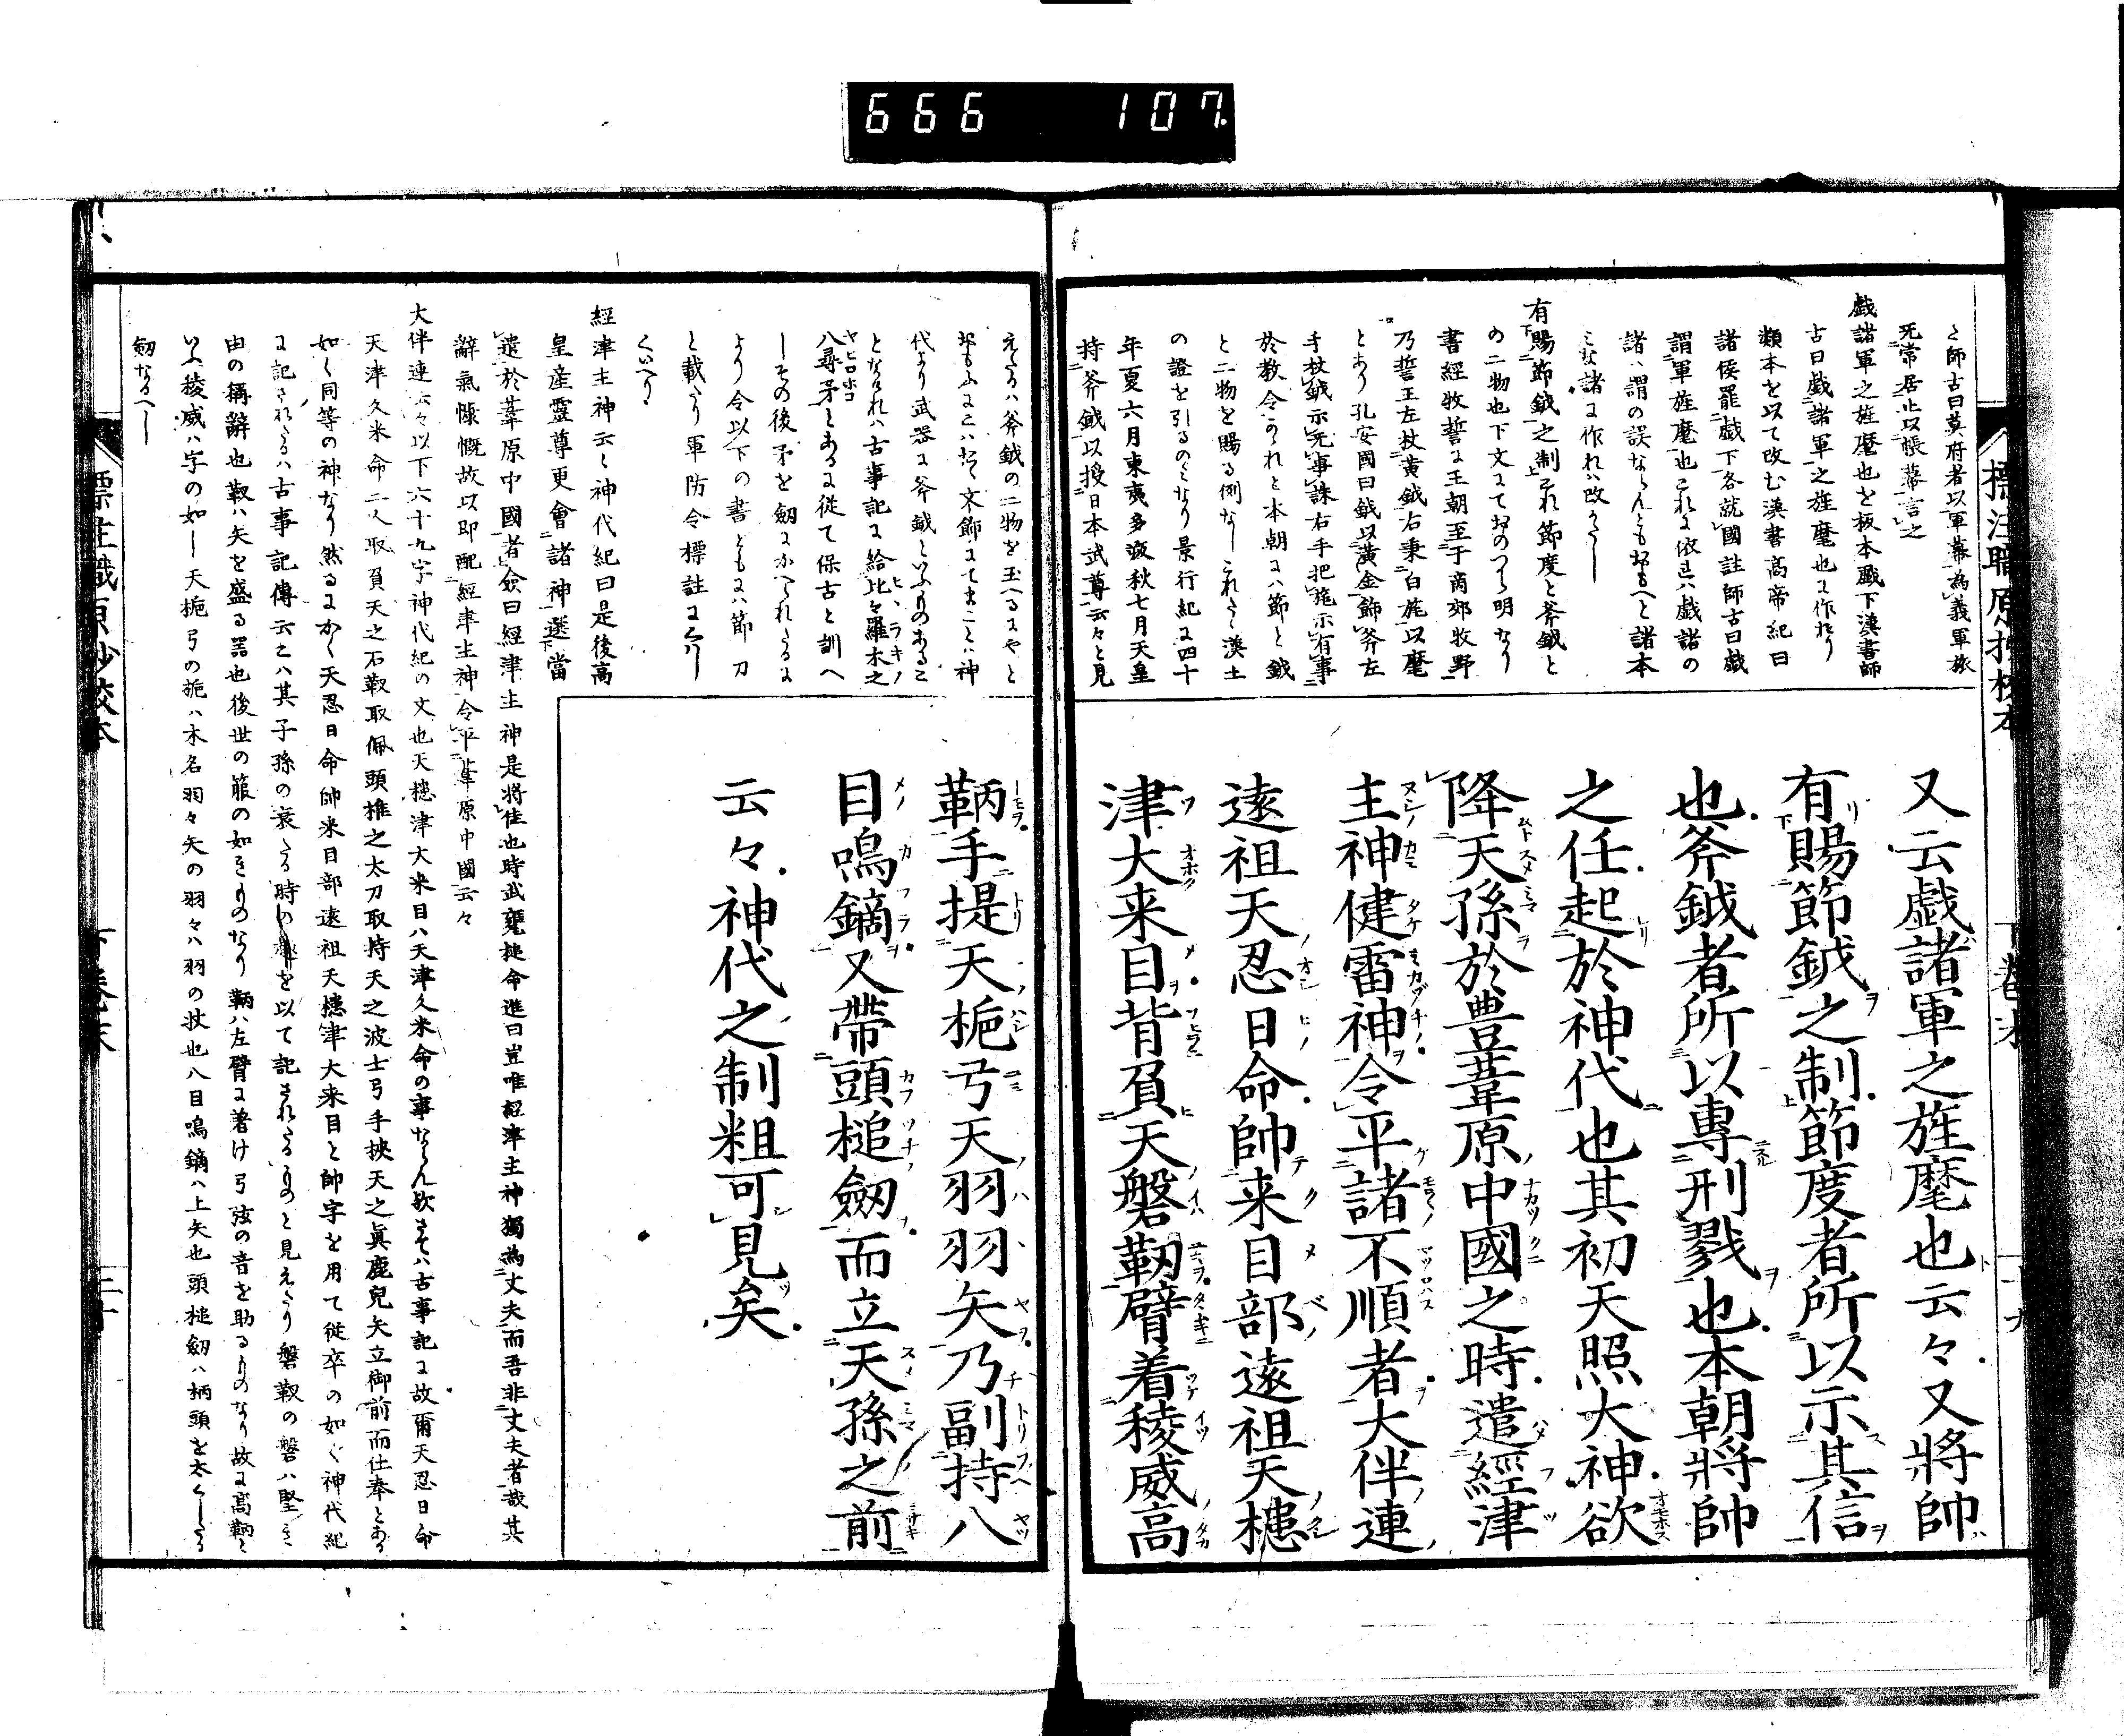 666 107.
標注職原抄校本 下巻末 十九
〻師古曰莫府者以軍幕為義軍旅
无常居止以帳幕言之
戯諸軍之旌麾也を板本戯下漢書師
古曰戯諸軍之旌麾也に作れり
類本を以て改む漢書高帝紀曰
諸侯罷戯下各就國註師古曰戯
謂軍旌麾也これに依れハ戯諸の
諸ハ謂の誤ならんともおもへと諸本
みな諸に作れハ改めす
有賜節鉞之制これ節度と斧鉞と
の二物也下文にておのつから明なり
書經牧誓に王朝至于商郊牧野
乃誓王左杖黄鉞右秉白旄以麾
とあり孔安國曰鉞以黄金飾斧左
手杖鉞示无事誅右手把旄示有事
於教令これと本朝にハ節と鉞
と二物を賜る例なしこれたゝ漢土
の證を引るのミなり景行紀に四十
年夏六月東夷多叛秋七月天皇
持斧鉞以授日本武尊云々と見
又云戯諸軍之旌麾也云々又將帥
有賜節鉞之制節度者所以示其信
也斧鉞者所以專刑戮也本朝將帥
之任起於神代也其初天照大神欲
降天孫於豊葦原中國之時遣經津
主神健雷神令平諸不順者大伴連
遠祖天忍日命帥来目部遠祖天槵
津大来目背負天磐靫臂着稜威高
えたるハ斧鉞の二物を玉へるにやと
おもふにこハたゝ文飾にてまことハ神
代より武器に斧鉞といふものあるこ
となけれハ古事記に給比々羅木之
八尋矛とあるに從て保古と訓へ
しその後矛を劔にかへられたるに
より令以下の書ともにハ節刀
と載たり軍防令標註に委し
くいへり
經津主神云々神代紀曰是後高
皇産靈尊更會諸神選當
遣於葦原中國者僉曰經津主神是將佳也時武甕槌命進曰豈唯經津主神獨為丈夫而吾非丈夫者哉其
辭氣慷慨故以即配經津主神令平葦原中國云々
大伴連云々以下六十九字神代紀の文也天槵津大来目ハ天津久米命の事ならん歟さてハ古事記に故爾天忍日命
天津久米命二人取負天之石靫取佩頭椎之太刀取持天之波士弓手挾天之眞鹿兒矢立御前而仕奉とある
如く同等の神なり然るにかく天忍日命帥来目部遠祖天槵津大来目と帥字を用て従卒の如く神代紀
に記されたるハ古事記傳云こハ其子孫の衰たる時のを以て記されたるものと見えたり磐靫の磐ハ堅き
由の稱辭也靫ハ矢を盛る器也後世の箙の如きものなり鞆ハ左臂に著け弓弦の音を助るものなり故に高鞆と
いふ稜威ハ字の如し天梔弓の梔ハ木名羽々矢の羽々ハ羽の状也八目鳴鏑ハ上矢也頭槌劔ハ柄頭を太くしたる
劔なるへし
鞆手提天梔弓天羽羽矢乃副持八
目鳴鏑又帶頭槌劔而立天孫之前
云々神代之制粗可見矣
標注職原抄校本 下巻末 二十